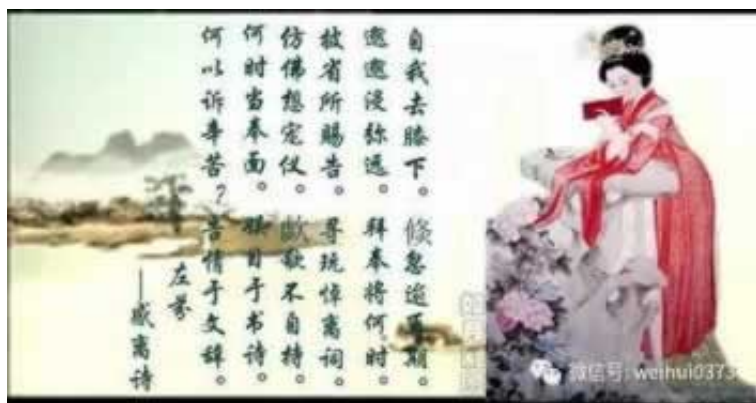 自我去膝下。倏忽逾再期。
邈邈浸弥远。拜奉将何时。
披省所赐告。寻玩悼离词。
仿佛想容仪。歔欷不自持。
何时当奉面。娱目于书诗。
何以诉辛苦?告情于文辞。
左芬
—感离诗
微信号: weihui0373